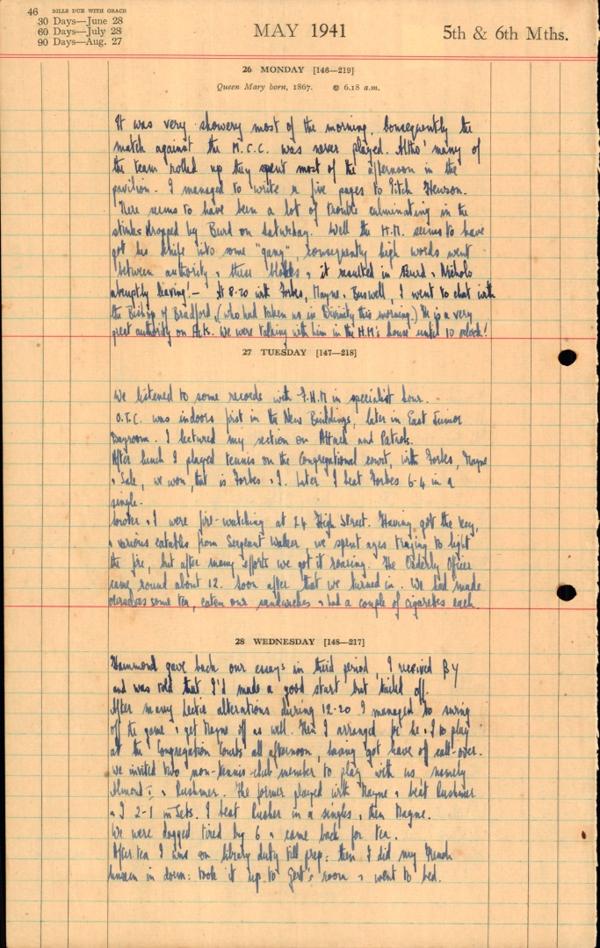 46 BILLS DUE WITH GRACE
30 Days—June 28
60 Days—July 28
90 Days—Aug. 27
MAY 1941
5th & 6th Mths.
26 MONDAY [146—219]
Queen Mary born, 1867. 6.18 a.m.
It was very showery most of the morning, consequently the
match against the M.C.C. was never played. Altho' many of
the team rolled up they spent most of the afternoon in the
pavilion. I managed to write a five pages to Fitch Hewson.
There seems to have been a lot of trouble culminating in the
stinks dropped by Burd on Saturday. Well the H.M. seems to have
got his knife into some "gang", consequently high words went
between authority & these & it resulted in Burd & Nichols
abruptly leaving! — At 8.20 with Forbes, Mayne & Buswell, I went to chat with
the Bishop of Bradford, (who had taken us in Divinity this morning) He is a very
great authority on We were talking with him in the H.M's house until 10 o'clock!
27 TUESDAY [147—218]
We listened to some records with in specialist hour.
O.T.C. was indoors first in the New Buildings, later in East Junior
Dayroom. I lectured my section on Attack and Patrols.
After lunch I played tennis on the Congregational court, with Forbes, Mayne
& Sale, we won, that is Forbes & I. Later I beat Forbes 6-4 in a
single.
& I were fire-watching at 24 High Street. Having got the key,
& various eatables from Sergeant Walker, we spent ages trying to light
the fire, but after many efforts we got it roaring. The Orderly Officer
came round about 12. soon after that we turned in. We had made
ourselves some tea, eaten our sandwiches & had a couple of cigarettes each.
28 WEDNESDAY [148—217]
Hammond gave back our essays in third period, I received βγ
and was told that I'd made a good start but tailed off.
After many hectic alterations during 12-20 I managed to swing
off the game & get Mayne off as well. Then I arranged for he & I to play
at the Congregation Courts all afternoon, having got leave off call-over.
We invited two non-tennis-club member to play with us, namely
Almond & Rushmer. The former played with Mayne & beat Rushmer
& I 2-1 in Sets. I beat Rusher in a singles & then Mayne.
We were dogged tired by 6 & came back for tea.
After tea I was on library duty till prep: then I did my French
in down: took it up to room & went to bed.